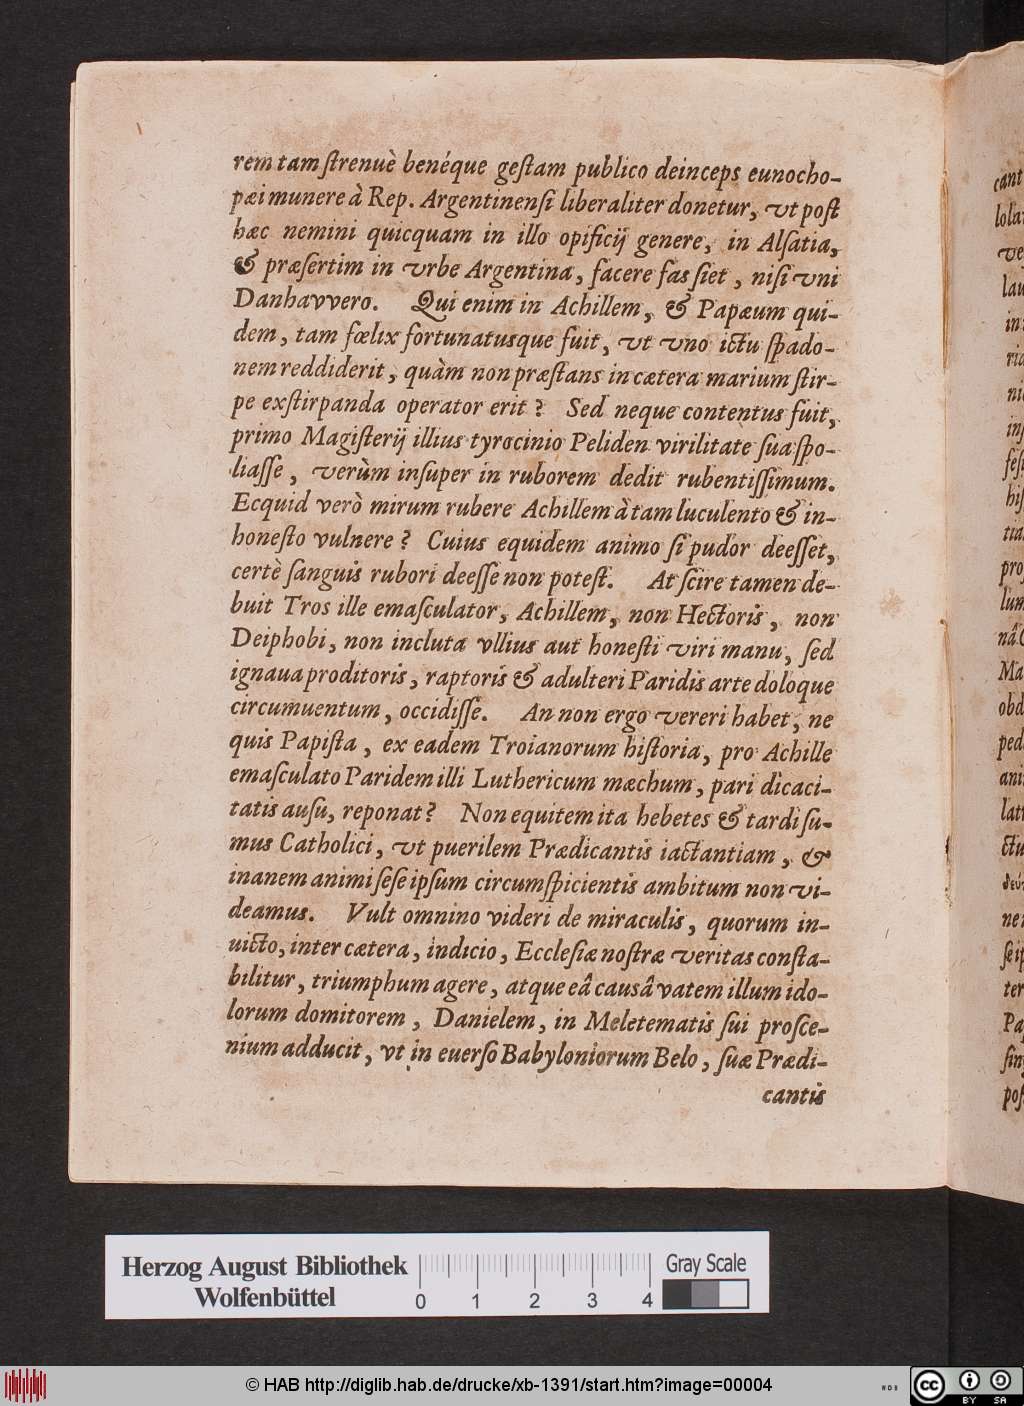 rem tam ſtrenuè benéque geſtam publico deinceps eunocho-
pæi munere à Rep. Argentinenſi liberaliter donetur, vt poſt
hæc nemini quicquam in illo opificij genere, in Alſatia,
& præſertim in vrbe Argentina, facere fas ſiet, niſi vni
Danhavvero. Qui enim in Achillem, & Papæum qui-
dem, tam fœlix fortunatusque fuit, vt vno ictu ſpado-
nem reddiderit, quàm non præſtans in cætera marium ſtir-
pe exſtirpanda operator erit? Sed neque contentus fuit,
primo Magiſterij illius tyrocinio Peliden virilitate ſua ſpo-
liaſſe, verùm inſuper in ruborem dedit rubentiſſimum.
Ecquid verò mirum rubere Achillem à tam luculento & in-
honeſto vulnere? Cuius equidem animo ſi pudor deeſſet,
certè ſanguis rubori deeſſe non poteſt. At ſcire tamen de-
buit Tros ille emaſculator, Achillem, non Hectoris, non
Deiphobi, non incluta vllius aut honeſti viri manu, ſed
ignaua proditoris, raptoris & adulteri Paridis arte doloque
circumuentum, occidiſſe. An non ergo vereri habet, ne
quis Papiſta, ex eadem Troianorum hiſtoria, pro Achille
emaſculato Paridem illi Luthericum mœchum, pari dicaci-
tatis auſu, reponat? Non equitem ita hebetes & tardi ſu-
mus Catholici, vt puerilem Prædicantis iactantiam, &
inanem animi ſeſe ipſum circumſpicientis ambitum non vi-
deamus. Vult omnino videri de miraculis, quorum in-
uicto, inter cætera, indicio, Eccleſiæ noſtræ veritas conſta-
bilitur, triumphum agere, atque eâ causâ vatem illum ido-
lorum domitorem, Danielem, in Meletematis ſui proſce-
nium adducit, vt in euerſo Babyloniorum Belo, ſuæ Prædi-
cantis
cant
ve
lau
in
nic
pro
lum
Ma
obd
ped
ani
lat
ctu
ter
pof
Herzog August Bibliothek
Wolfenbüttel
0 1 2 3 4
Gray Scale
© HAB http://diglib.hab.de/drucke/xb-1391/start.htm?image=00004
cc
BY SA